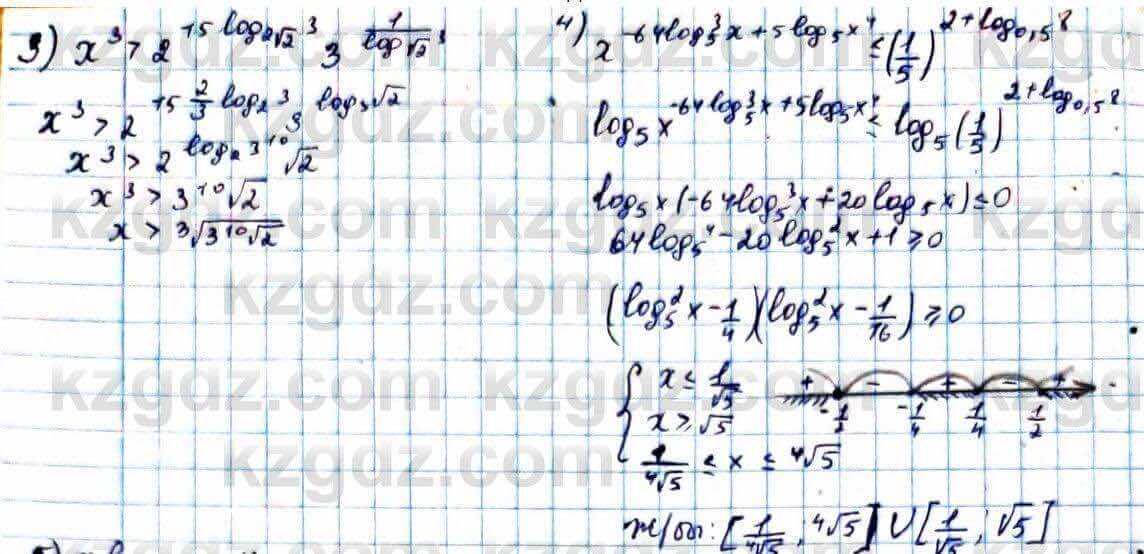 3) x³ > 2^(15 log_(2√2) 3) 3^(1/(log_(√2) 3))
x³ > 2^(15 2/3 log₂ 3) 3^(log₃ √2)
x³ > 2^(log₂ 3¹⁰) √2
x³ > 3¹⁰√2
x > ³√(3¹⁰√2)
4) x^(-64 log₅³ x + 5 log₅ x⁴) ≤ (1/5)^(2 + log_(0,5) 8)
log₅ x^(-64 log₅³ x + 5 log₅ x⁴) ≤ log₅ (1/5)^(2 + log_(0,5) 8)
log₅ x (-64 log₅³ x + 20 log₅ x) ≤ 0
64 log₅⁴ - 20 log₅² x + 1 ≥ 0
(log₅² x - 1/4)(log₅² x - 1/16) ≥ 0
{ x ≤ 1/√5
x ≥ √5
1/⁴√5 ≤ x ≤ ⁴√5
+ - + - +
-1/2 -1/4 1/4 1/2
ж/бы: [1/⁴√5 ; ⁴√5] ∪ [1/√5 ; √5]
kzgdz.com kzgdz.com
kzgdz.com kzgdz.com
kzgdz.com
kzgdz.com kzgdz.com
kzgdz.com